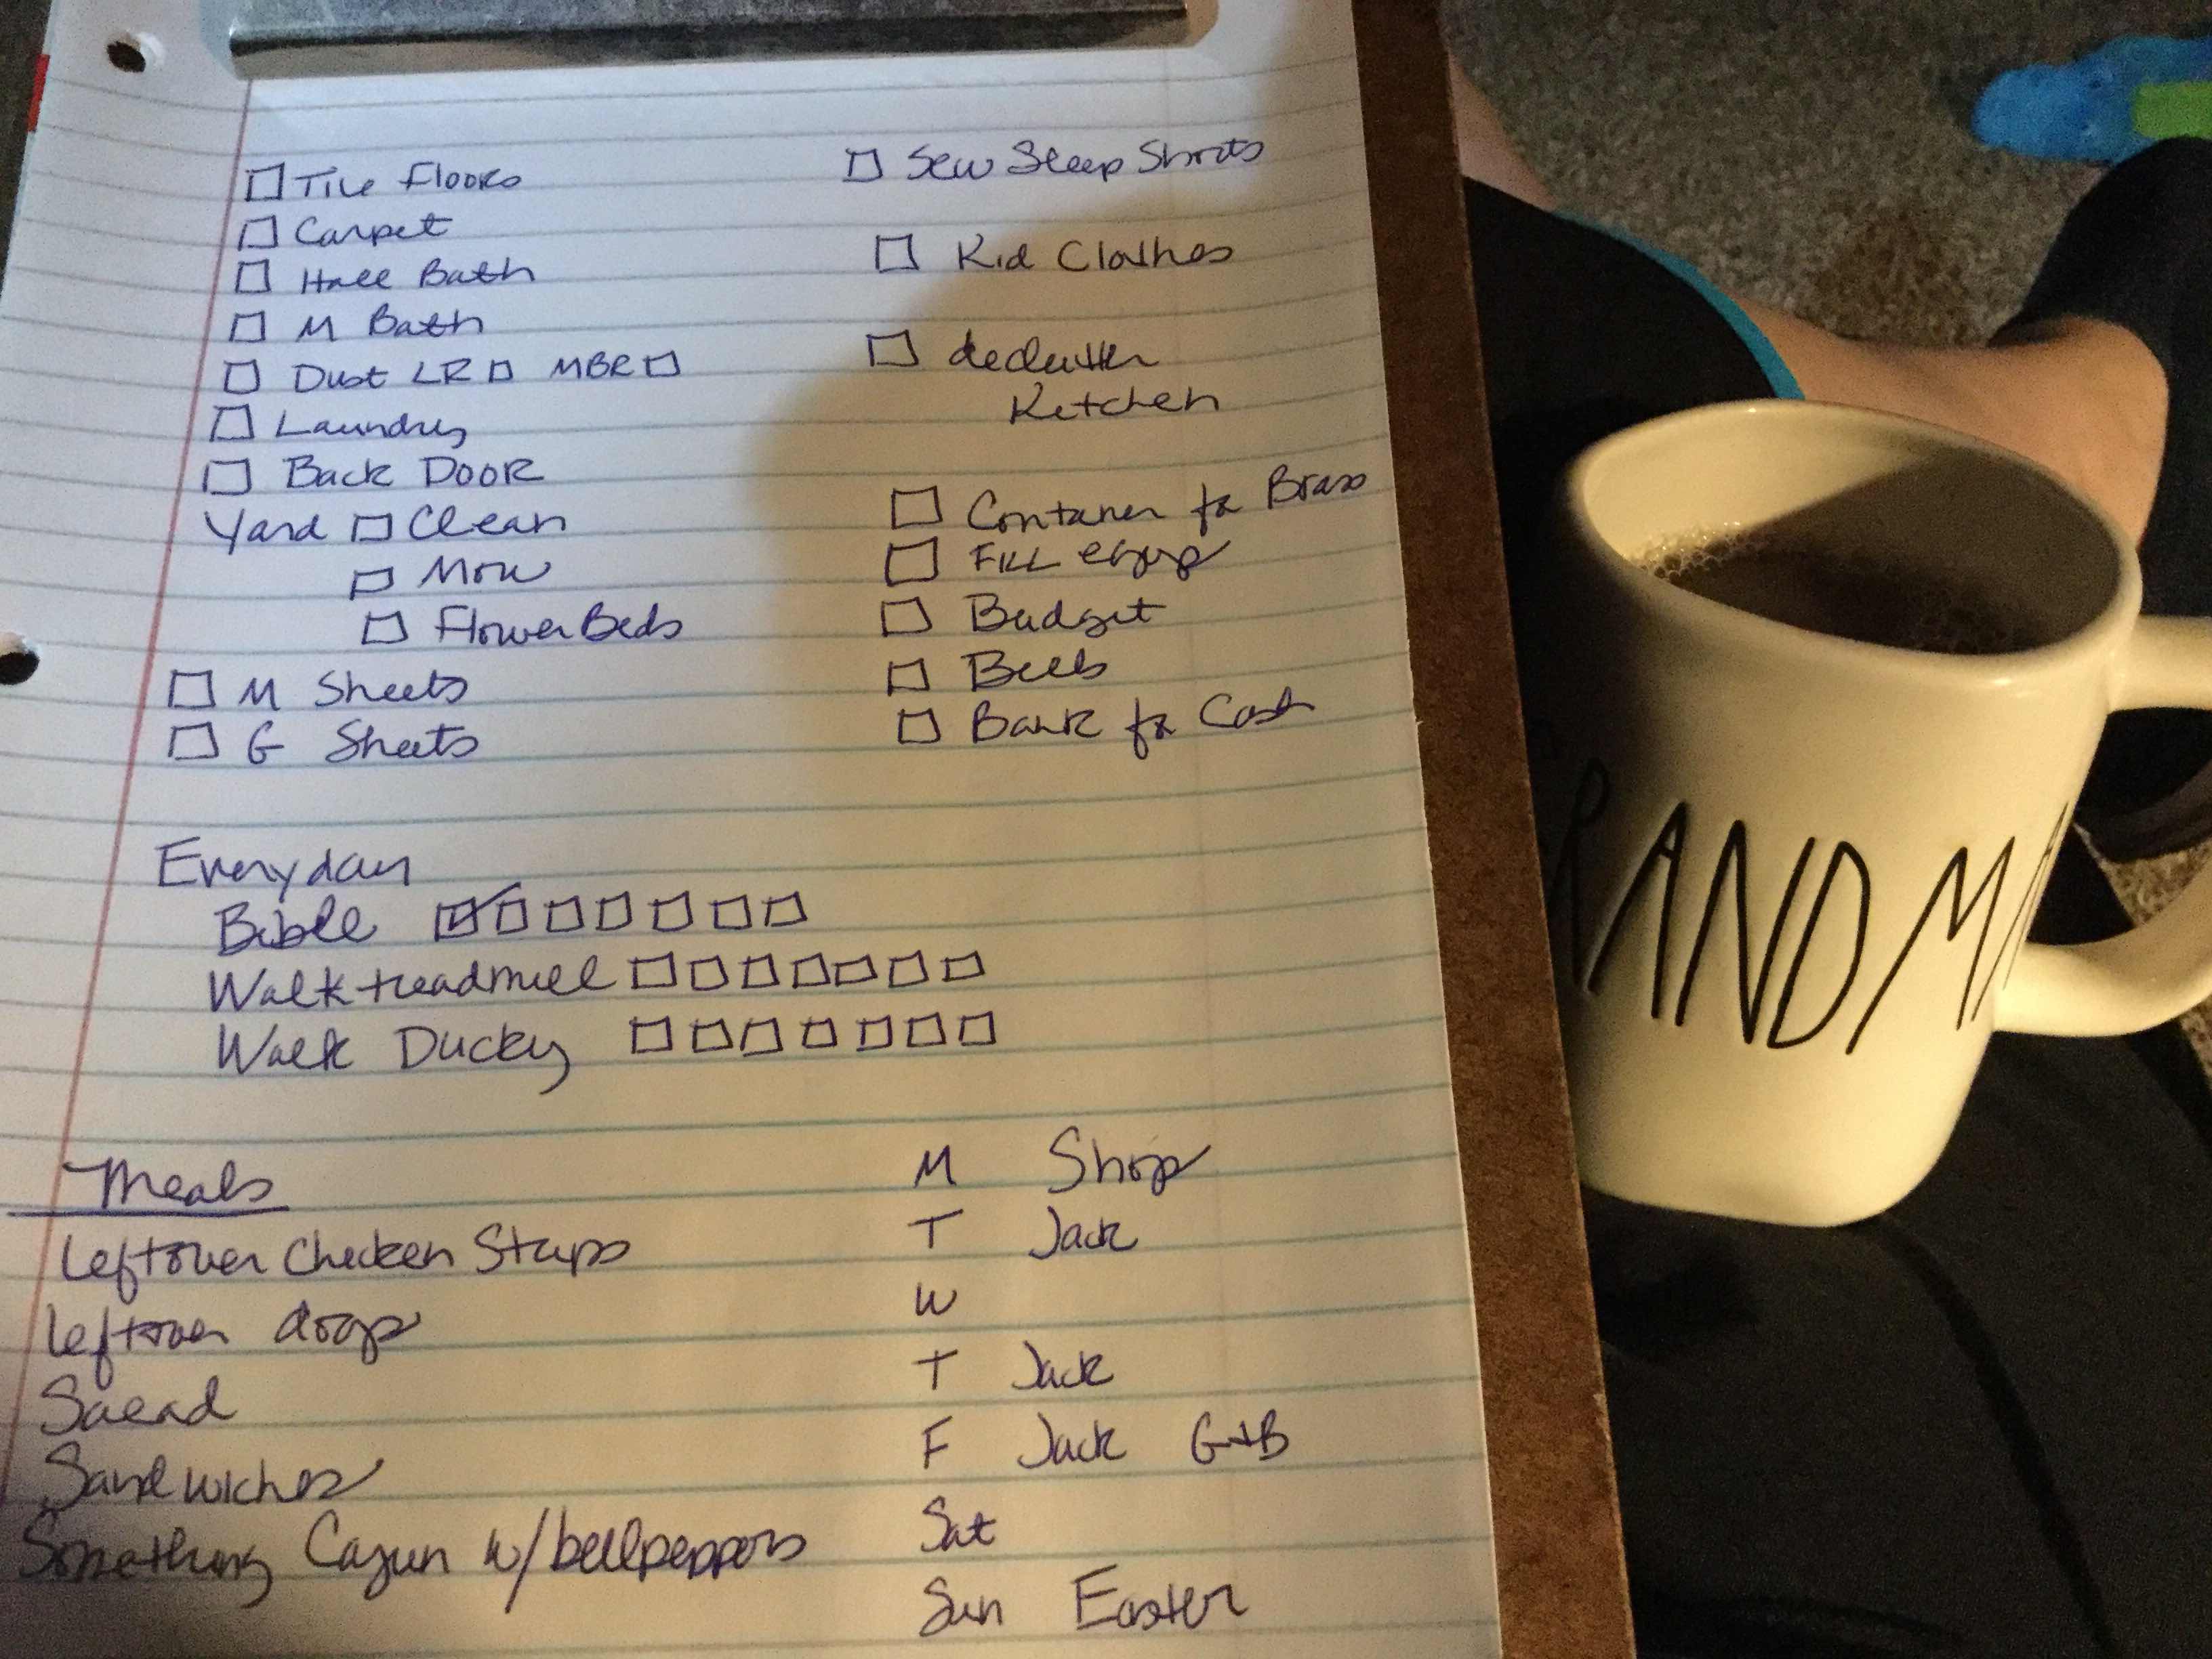 ☐ Tile Floors
☐ Carpet
☐ Hall Bath
☐ M Bath
☐ Dust LR ☐ MBR ☐
☐ Laundry
☐ Back Door
Yard ☐ Clean
☐ Mow
☐ Flower Beds
☐ M Sheets
☐ G Sheets
☐ Sew Sleep Shorts
☐ Kid Clothes
☐ declutter
Kitchen
☐ Container for Brass
☐ Fill
☐ Budget
☐ Bills
☐ Bank for Cash
Everyday
Bible ☑ ☐ ☐ ☐ ☐ ☐ ☐
Walk treadmill ☐ ☐ ☐ ☐ ☐ ☐ ☐
Walk Ducky ☐ ☐ ☐ ☐ ☐ ☐ ☐
Meals
Leftover Chicken Strips
Leftover dogs
Salad
Sandwiches
Something Cajun w/bellpeppers
M Shop
T Jack
W
T Jack
F Jack G+B
Sat
Sun Easter
RANDMA